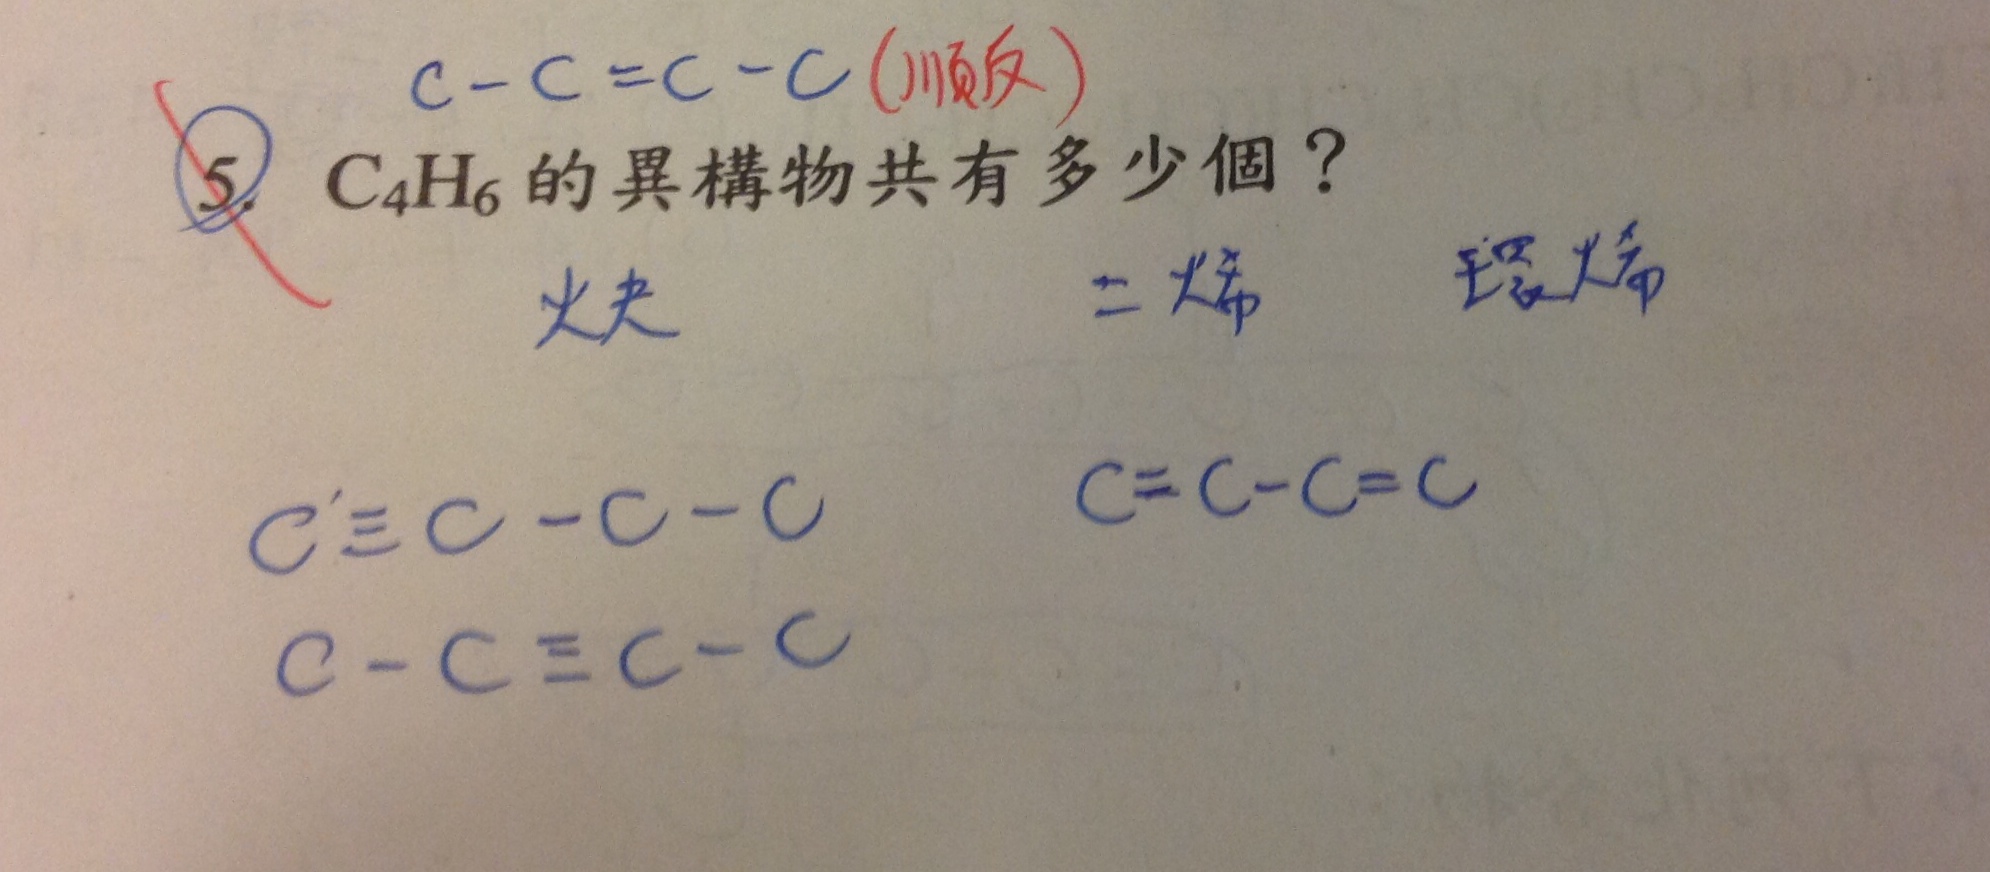 C-C=C-C(順反)
5. C₄H₆的異構物共有多少個？
炔 二烯 環烯
C≡C-C-C C=C-C=C
C-C≡C-C